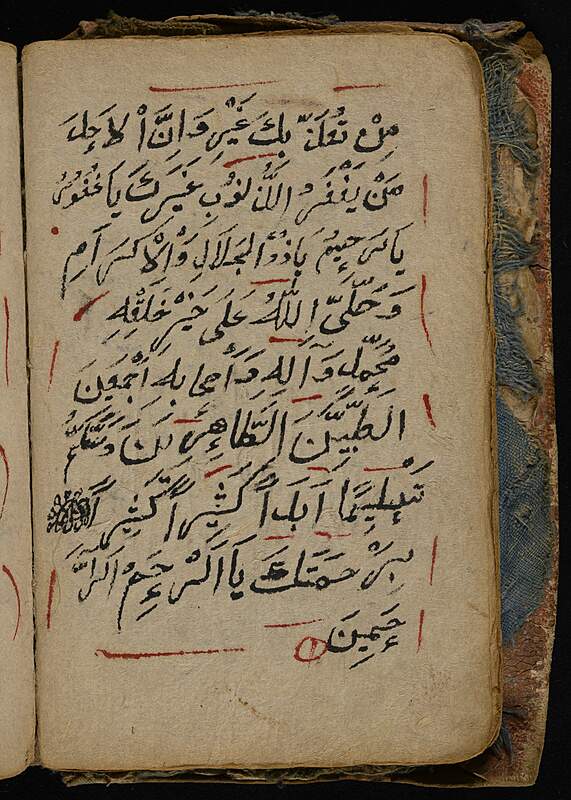 مِنْ تُعَذِّبُكَ غَيْرِ وَاِنَّ اْلاَجِلَ
مَنْ يَغْفِرُ الذُّنُوْبِ غَيْرَكَ يَا غَفُوْرُ
يَا رَحِيْمُ يَا ذُوْالْجَلَالِ وَاْلاِكْرَامِ
وَصَلَّىَ اللّٰهُ عَلَى خَيْرِ خَلْقِهِ
مُحَمَّدٍ وَآلِهِ وَاَصْحَابِهِ اَجْمَعِيْنَ
الطَّيِّبِيْنَ الطَّاهِرِيْنَ وَسَلَّمَ
تَسْلِيْمًا اَبَدًا كَثِيْرًا كَثِيْرًا
بِرَحْمَتِكَ يَا اَرْحَمْ الرَّا
حِمِيْنَ